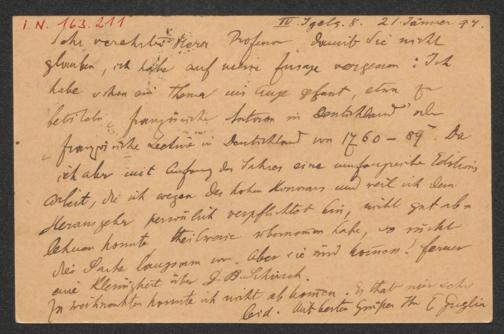 I.N. 163.211
IV. Igelg. 8. 21. Jänner 97.
Sehr verehrter Herr Professor Damit Sie nicht
glauben, ich habe auf meine Zusage vergessen: Ich
habe schon ein Thema ins Auge gefasst, etwa zu
betiteln „französische Autoren in Deutschland" oder
„französische Lectüre in Deutschland von 1760–89". Da
ich aber mit Anfang des Jahres eine umfangreiche Editions
arbeit, die ich wegen des hohen Honorars und weil ich dem
Herausgeber persönlich verpflichtet bin, nicht gut ab
lehnen konnte theilweise übernommen habe, so rückt
die Sache langsam vor. Aber sie wird kommen! ferner
eine Kleinigkeit über J. B. Schirach.
Zu Weihnachten konnte ich nicht abkommen. Es that mir sehr
leid. Mit besten Grüßen Ihr E Guglia